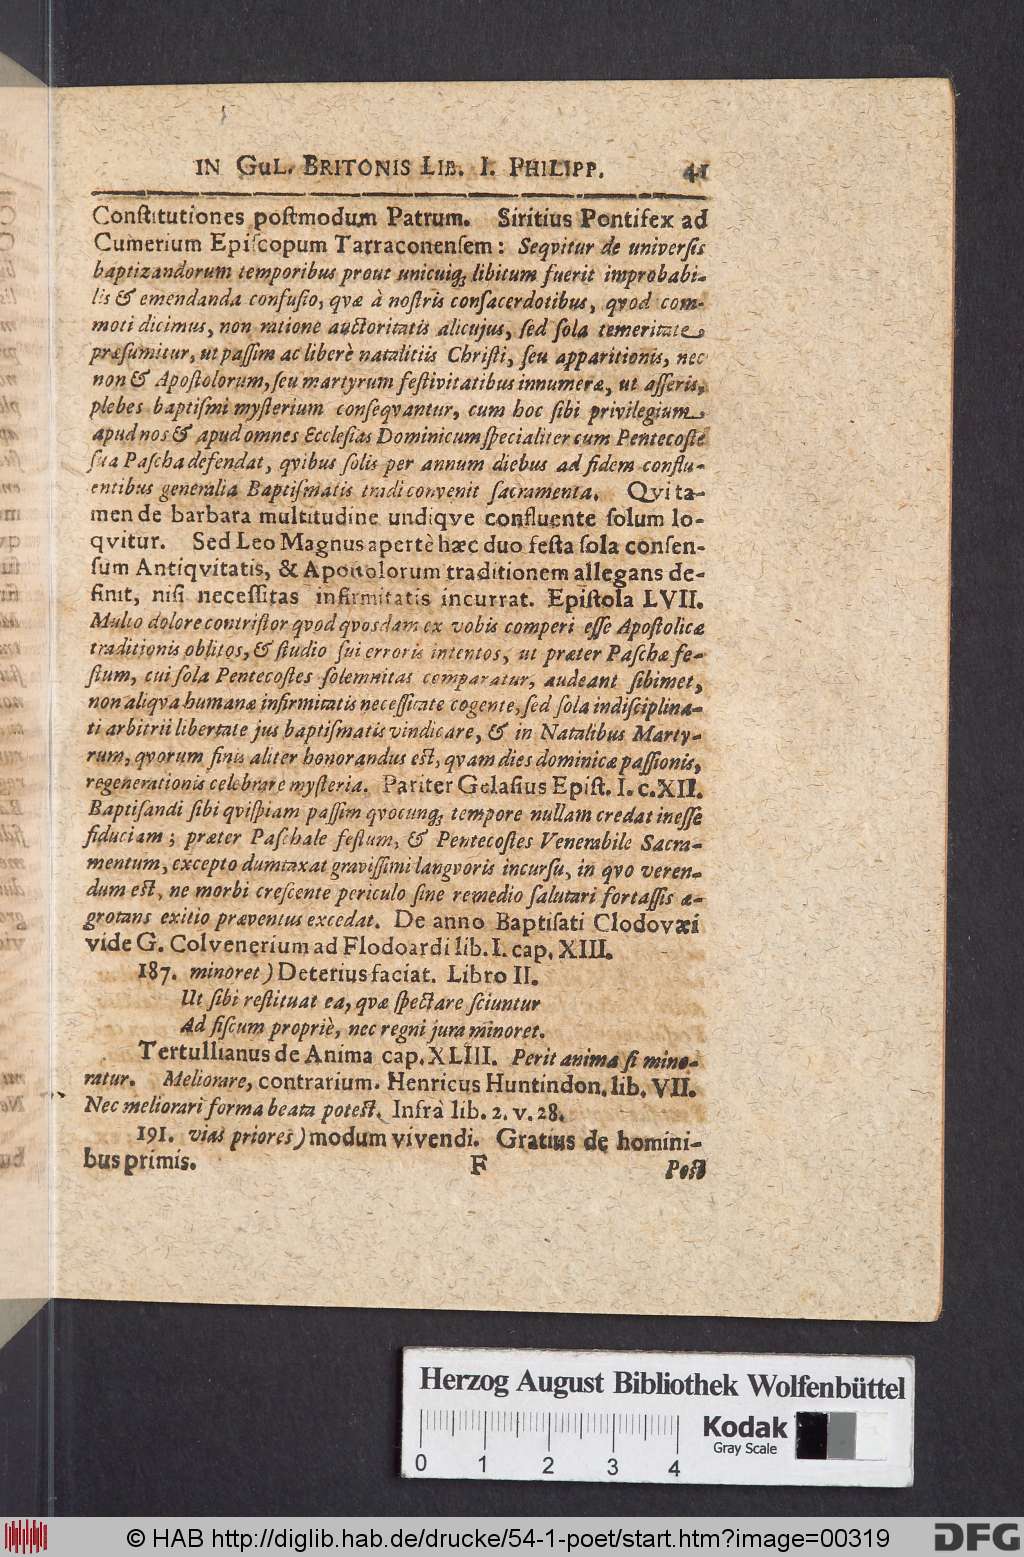 IN GUL. BRITONIS LIB. I. PHILIPP. 41
Conſtitutiones poſtmodum Patrum. Siritius Pontifex ad
Cumerium Epiſcopum Tarraconenſem: Seqvitur de univerſis
baptizandorum temporibus prout unicuiq; libitum fuerit improbabi-
lis & emendanda confuſio, qvæ à noſtris conſacerdotibus, qvod com-
moti dicimus, non ratione auctoritatis alicujus, ſed ſola temeritate
præſumitur, ut paſſim ac liberè natalitiis Chriſti, ſeu apparitionis, nec
non & Apoſtolorum, ſeu martyrum feſtivitatibus innumeræ, ut aſſeris,
plebes baptiſmi myſterium conſeqvantur, cum hoc ſibi privilegium
apud nos & apud omnes Eccleſias Dominicum ſpecialiter cum Pentecoſte
ſua Paſcha defendat, qvibus ſolis per annum diebus ad fidem conflu-
entibus generalia Baptiſmatis tradi convenit ſacramenta. Qvi ta-
men de barbara multitudine undiqve confluente ſolum lo-
qvitur. Sed Leo Magnus apertè hæc duo feſta ſola conſen-
ſum Antiqvitatis, & Apoſtolorum traditionem allegans de-
finit, niſi neceſſitas infirmitatis incurrat. Epiſtola LVII.
Multo dolore contriſtor qvod qvosdam ex vobis comperi eſſe Apoſtolicæ
traditionis oblitos, & ſtudio ſui erroris intentos, ut præter Paſchæ fe-
ſtum, cui ſola Pentecoſtes ſolemnitas comparatur, audeant ſibimet,
non aliqva humanæ infirmitatis neceſſitate cogente, ſed ſola indiſciplina-
ti arbitrii libertate jus baptiſmatis vindicare, & in Natalibus Marty-
rum, qvorum finis aliter honorandus eſt, qvam dies dominicæ paſſionis,
regenerationis celebrare myſteria. Pariter Gelaſius Epiſt. I. c. XII.
Baptiſandi ſibi qviſpiam paſſim qvocunq; tempore nullam credat ineſſe
fiduciam; præter Paſchale feſtum, & Pentecoſtes Venerabile Sacra-
mentum, excepto dumtaxat graviſſimi langvoris incurſu, in qvo veren-
dum eſt, ne morbi creſcente periculo ſine remedio ſalutari fortaſſis æ-
grotans exitio præventus excedat. De anno Baptiſati Clodovæi
vide G. Colvenerium ad Flodoardi lib. I. cap. XIII.
187. minoret) Deterius faciat. Libro II.
Ut ſibi reſtituat ea, qvæ ſpectare ſciuntur
Ad fiſcum propriè, nec regni jura minoret.
Tertullianus de Anima cap. XLIII. Perit anima ſi mino-
ratur. Meliorare, contrarium. Henricus Huntindon. lib. VII.
Nec meliorari forma beata poteſt. Infrà lib. 2. v. 28.
191. vias priores) modum vivendi. Gratius de homini-
bus primis. F Poſt
Herzog August Bibliothek Wolfenbüttel
Kodak
Gray Scale
0 1 2 3 4
© HAB http://diglib.hab.de/drucke/54-1-poet/start.htm?image=00319
DFG